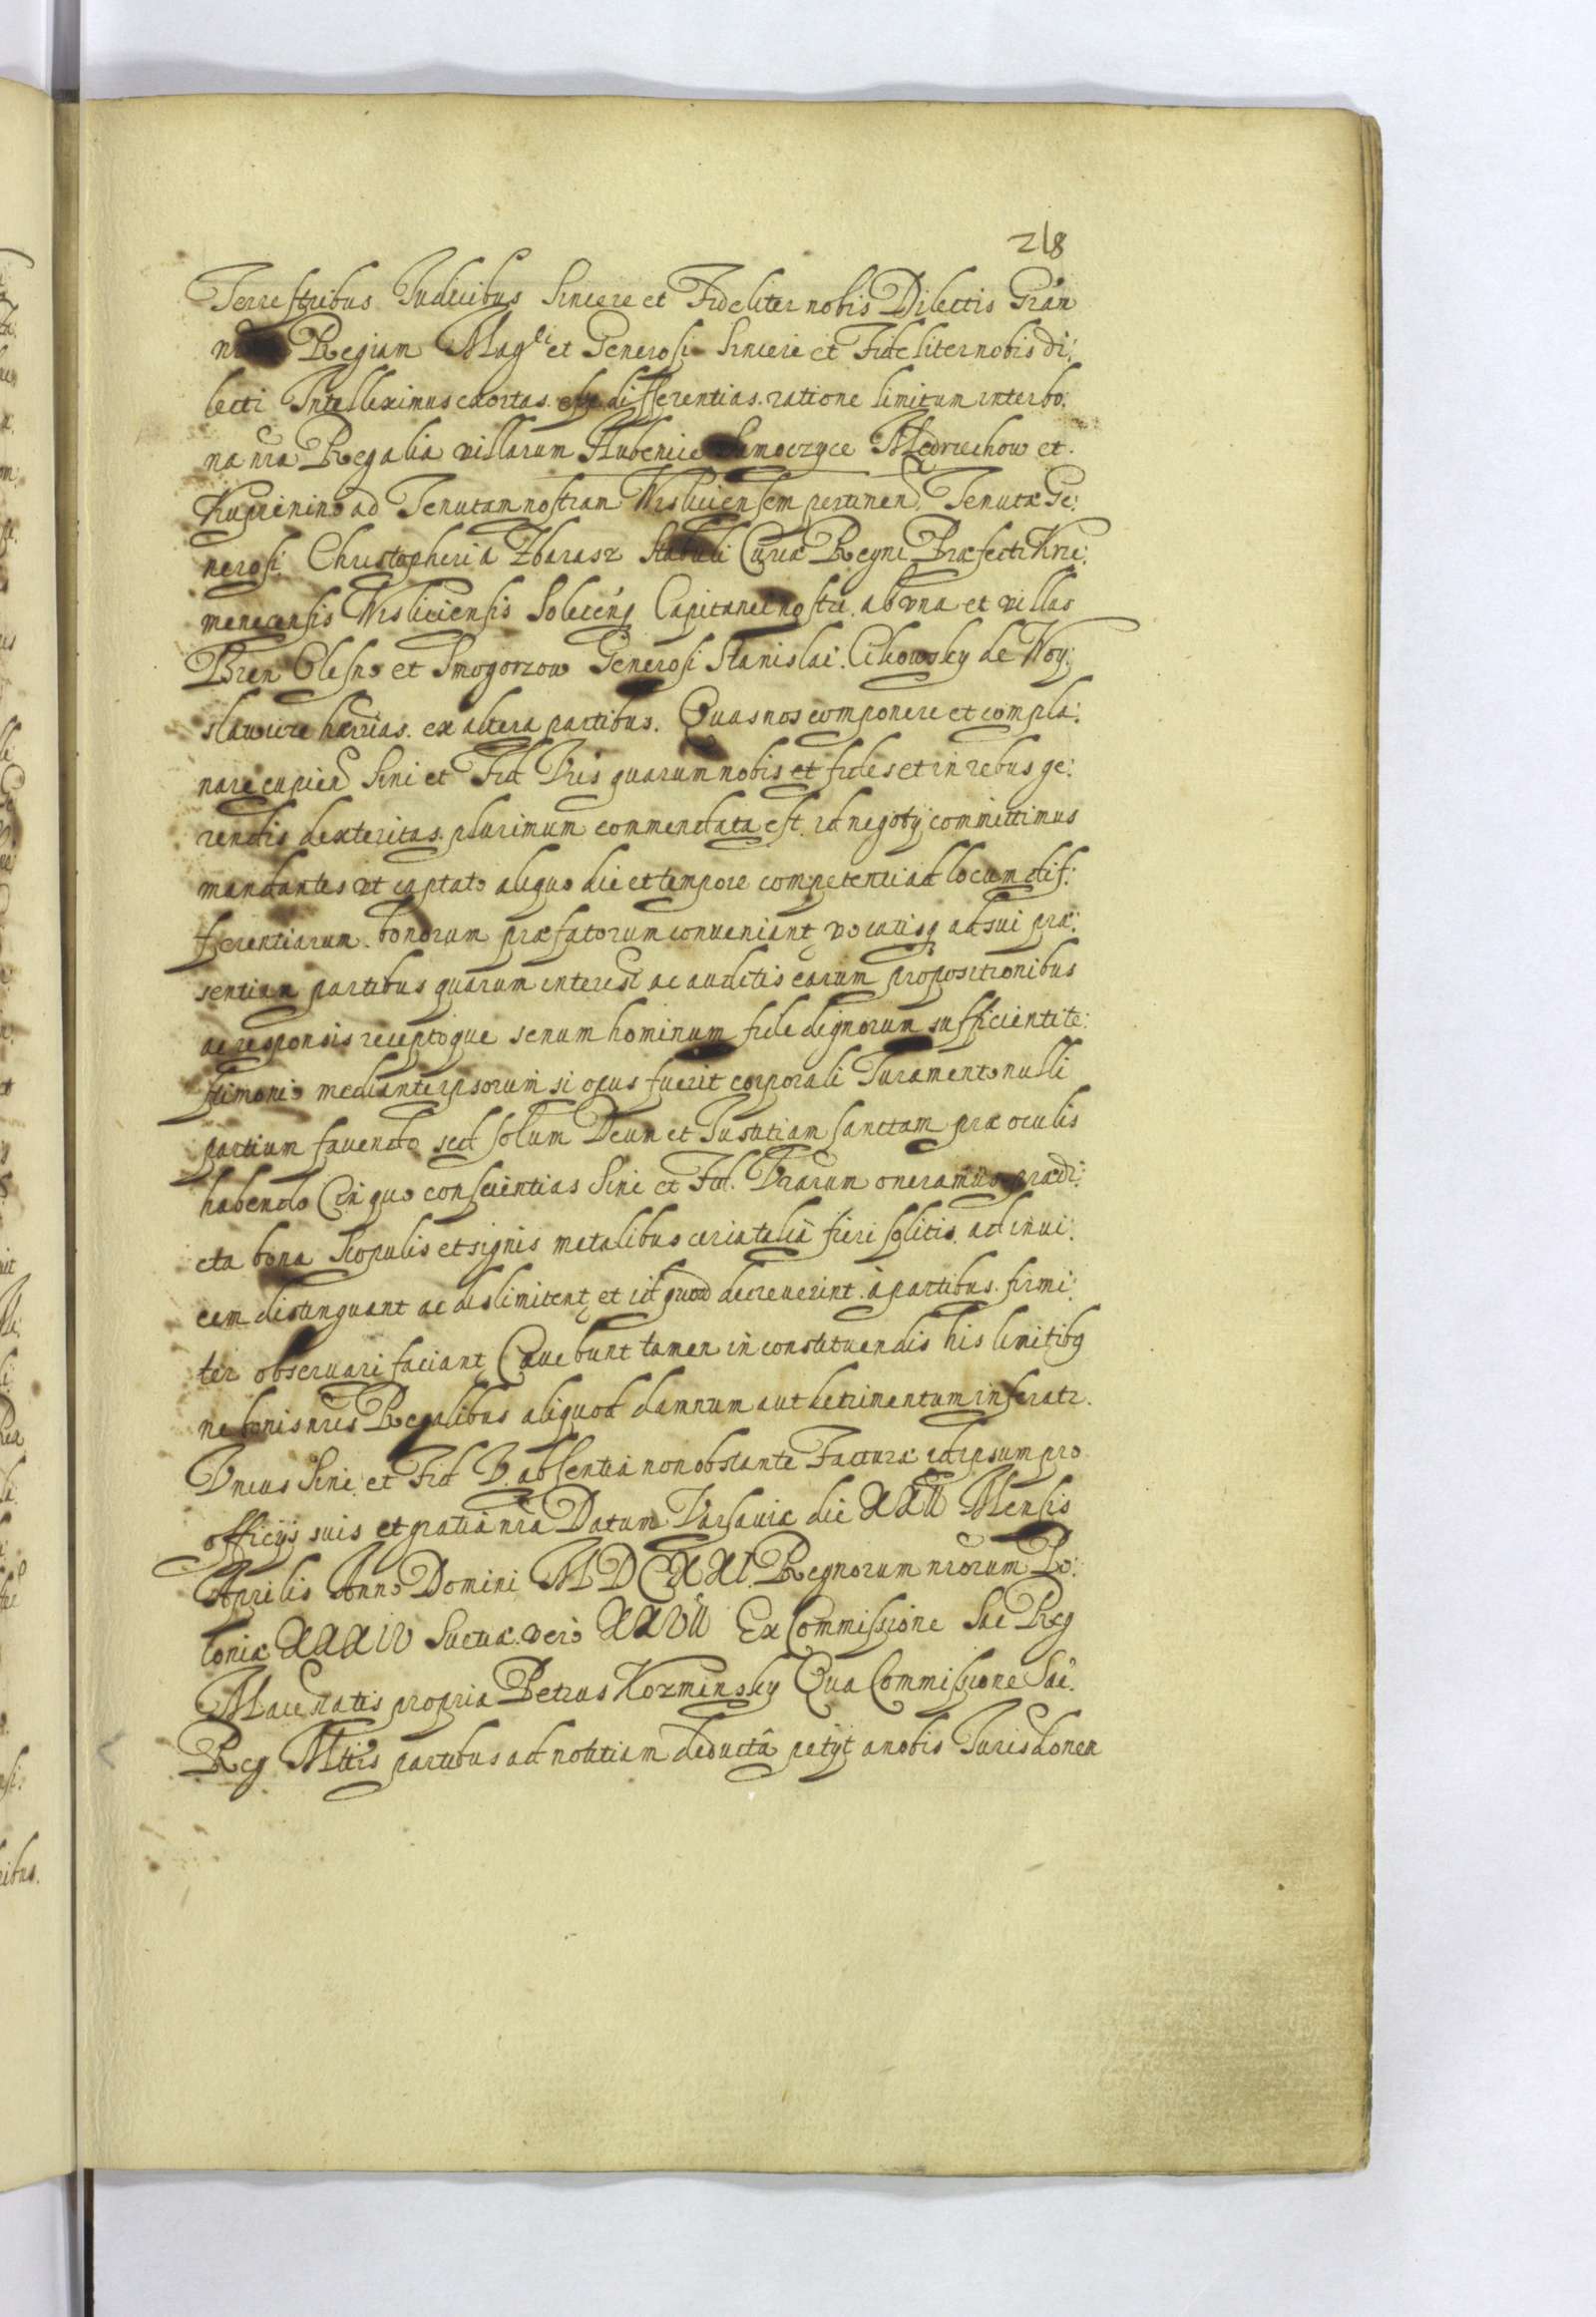 218
Terrestribus Iudicibus Sincere et Fideliter nobis Dilectis Gran
Regiam Magci et Generosi Sincere et Fideliter nobis di:
lecti Intelleximus exortas esse differentias ratione limitum inter bo:
na nra Regalia villarum Hubenice Samoczyce Medrzechow et
Kupienino ad Tenutam nostram Wisliciensem pertinen Tenutæ Ge:
nerosi Christopheri a Zbarasz Stabuli Curiæ Regni Præfecti Krze:
menecensis Wisliciensis Solecen Capitanei nostri ab vna et villas
Bren Olesno et Smogorzow Generosi Stanislai Cikowsky de Woy:
slawice hærias ex altera partibus. Quas nos componere et compla:
nare cupien Sini et Fid Vris quarum nobis et fides et in rebus ge:
rendis dexteritas plurimum commendata est id negotÿ committimus
mandantes vt captato aliquo die et tempore competenti ad locum dif:
ferentiarum bonorum præfatorum conueniant vocatisq ad sui præ:
sentiam partibus quarum interest ac auditis earum propositionibus
ac responsis receptoque senum hominum fide dignorum sufficienti te:
stimonio mediante ipsorum si opus fuerit corporali Iuramento nulli
partium fauendo sed solum Deum et Iustitiam sanctam præ oculis
habendo In quo conscientias Sini et Fid. Vrarum oneramus prædi:
cta bona Scopulis et signis metalibus circa talia fieri solitis ad inui:
cem distinguant ac dislimitent et id quod decreuerint à partibus firmi:
ter obseruari faciant Cauebunt tamen in constituendis his limitibq
ne bonis nris Regalibus aliquod damnum aut detrimentum inferatr.
Vnius Sini et Fid V. absentia non obstante Facturæ id ipsum pro
officijs suis et gratia nra Datum Varsauiæ die XXII Mensis
Aprilis Anno Domini MDCXXI. Regnorum nrorum Po:
loniæ XXXIV Sueciæ vero XXVII Ex Commissione Sac Reg
Maiestatis propria Petrus Kozminsky Qua Commissione Sac
Reg Mttis partibus ad notitiam deducta petÿt a nobis Iurisdonem